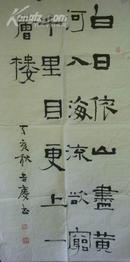 白日依山盡黃
河入海流欲窮
千里目更上一
層樓
丁亥秋吉慶书